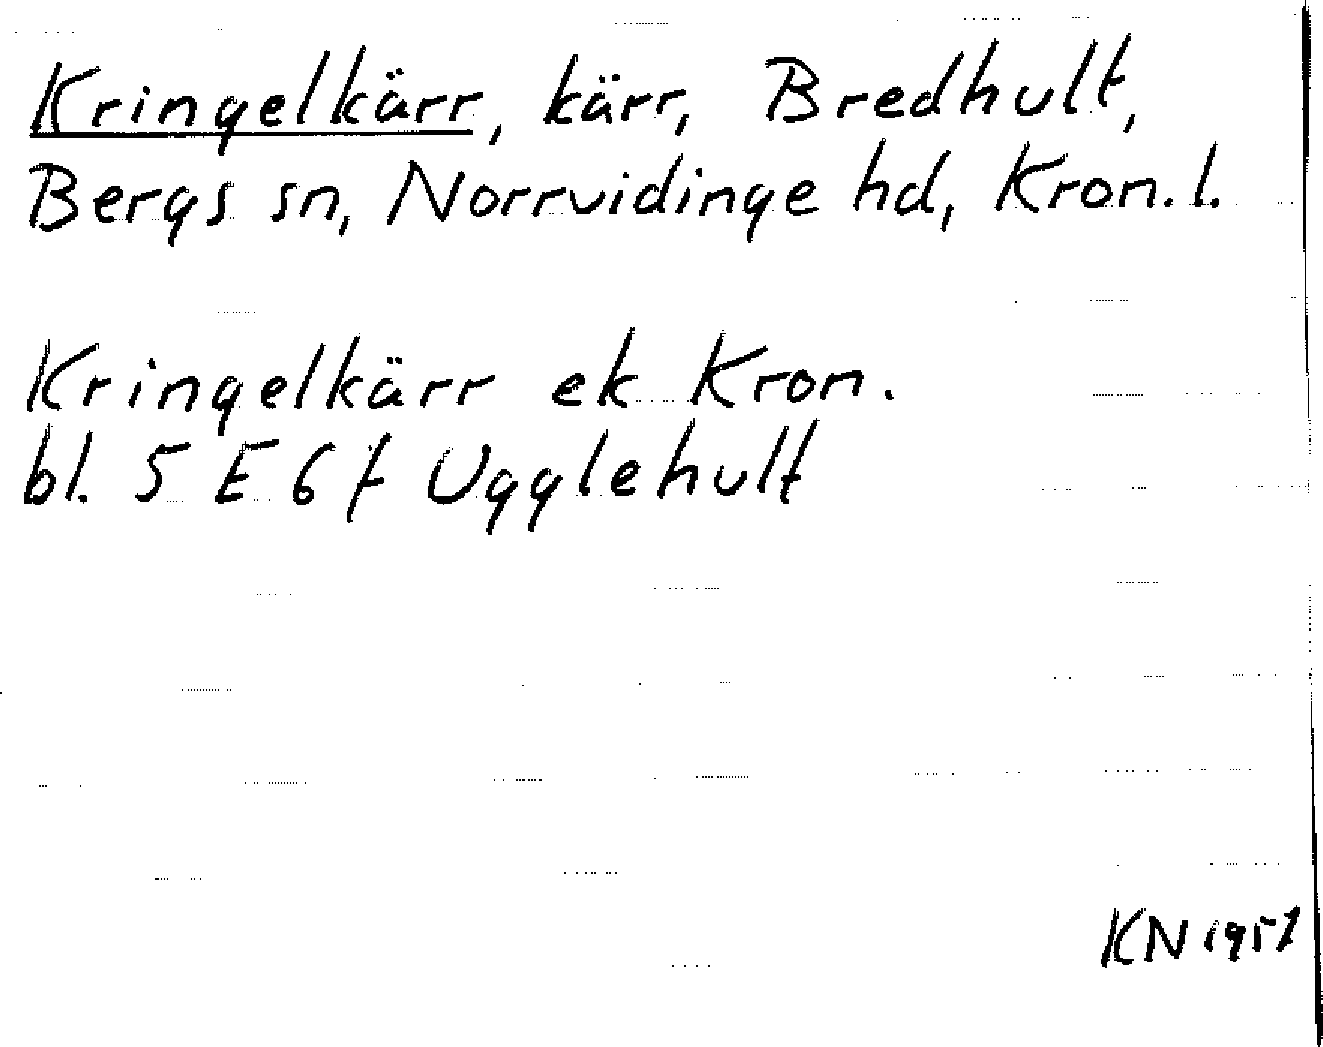 Kringelkärr, kärr, Bredhult,
Bergs sn, Norrvidinge hd, Kron. l.
Kringelkärr ek Kron.
bl. 5 E 6 f Ugglehult
KN 1951